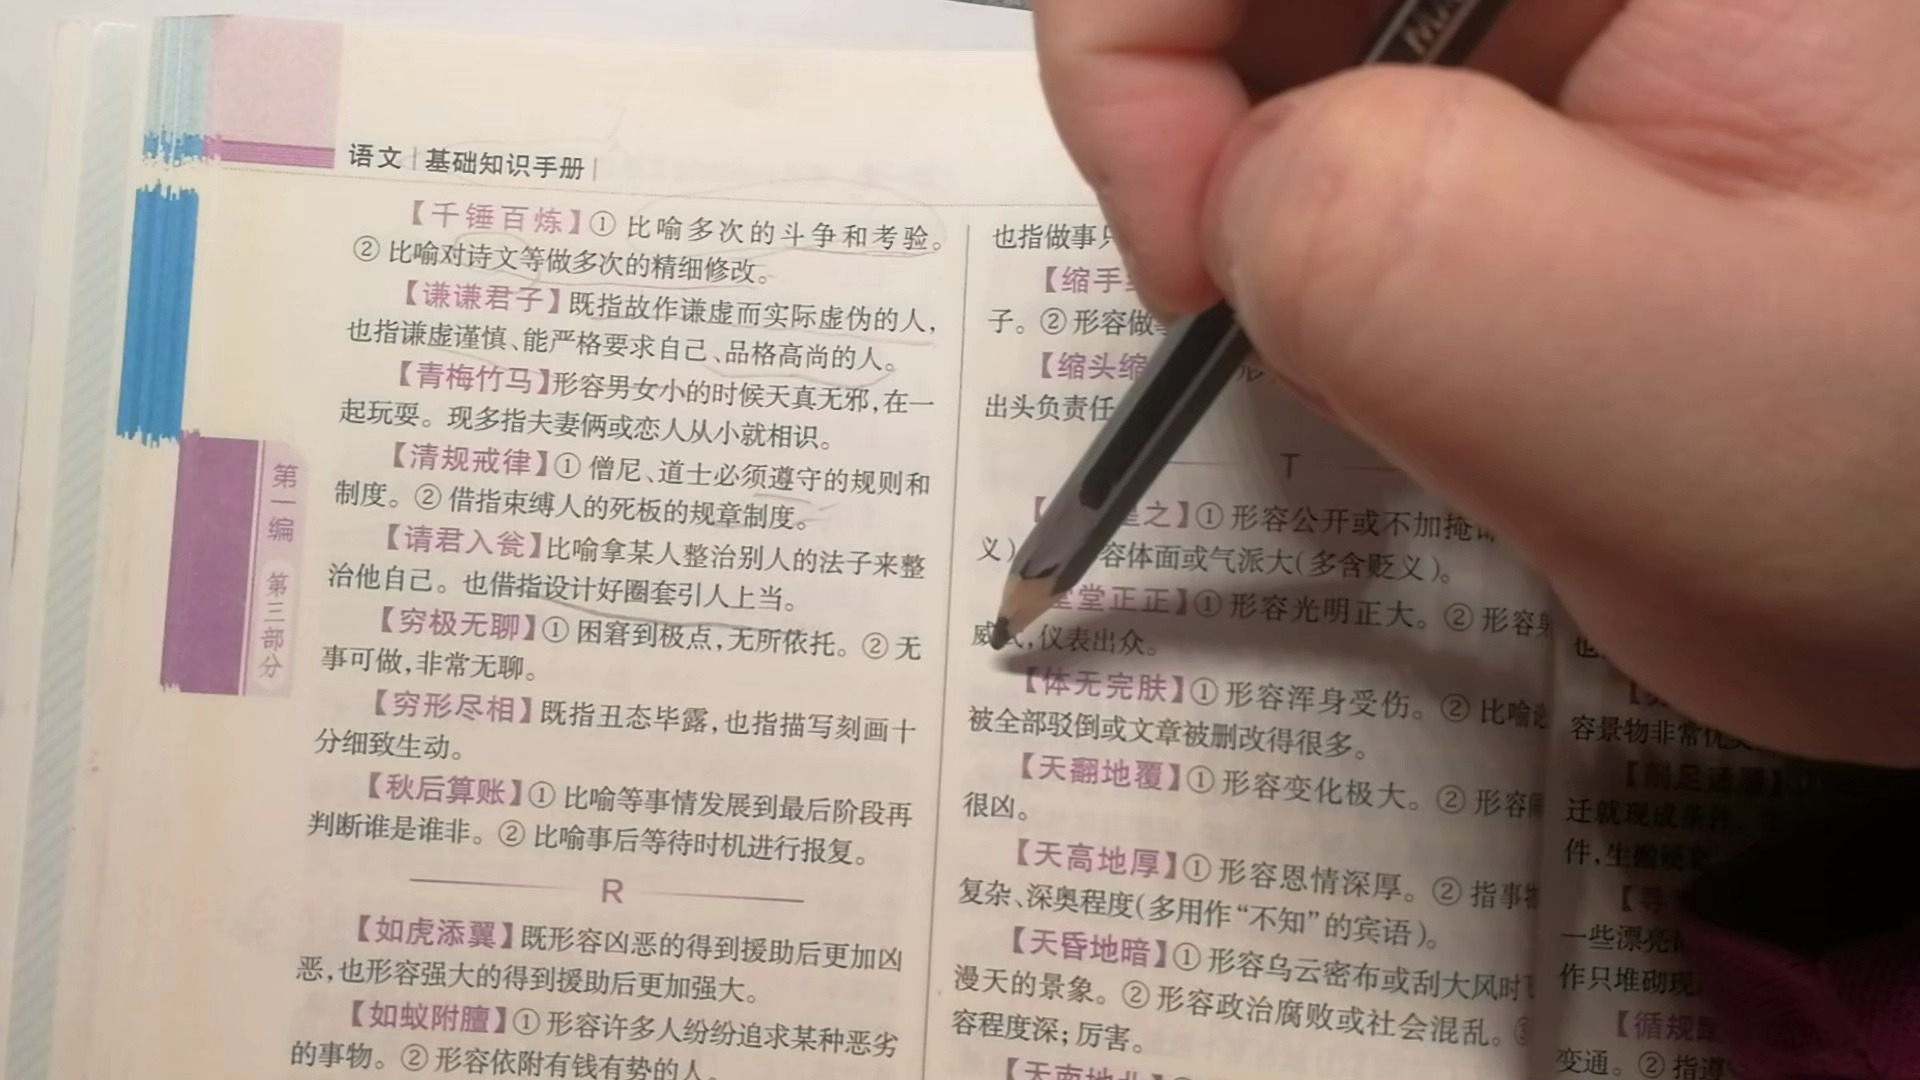 语文 | 基础知识手册 |
第一编 第三部分
【千锤百炼】① 比喻多次的斗争和考验。
② 比喻对诗文等做多次的精细修改。
【谦谦君子】既指故作谦虚而实际虚伪的人,
也指谦虚谨慎、能严格要求自己、品格高尚的人。
【青梅竹马】形容男女小的时候天真无邪,在一
起玩耍。现多指夫妻俩或恋人从小就相识。
【清规戒律】① 僧尼、道士必须遵守的规则和
制度。② 借指束缚人的死板的规章制度。
【请君入瓮】比喻拿某人整治别人的法子来整
治他自己。也借指设计好圈套引人上当。
【穷极无聊】① 困窘到极点,无所依托。② 无
事可做,非常无聊。
【穷形尽相】既指丑态毕露,也指描写刻画十
分细致生动。
【秋后算账】① 比喻等事情发展到最后阶段再
判断谁是谁非。② 比喻事后等待时机进行报复。
R
【如虎添翼】既形容凶恶的得到援助后更加凶
恶,也形容强大的得到援助后更加强大。
【如蚁附膻】① 形容许多人纷纷追求某种恶劣
的事物。② 形容依附有钱有势的人。
也指做事只
【缩手
子。② 形容做
【缩头缩
出头负责任
T
之】① 形容公开或不加掩
义) 容体面或气派大(多含贬义)。
堂堂正正】① 形容光明正大。② 形容
威 ,仪表出众。
【体无完肤】① 形容浑身受伤。② 比喻
被全部驳倒或文章被删改得很多。
【天翻地覆】① 形容变化极大。② 形容
很凶。
【天高地厚】① 形容恩情深厚。② 指事
复杂、深奥程度(多用作“不知”的宾语)。
【天昏地暗】① 形容乌云密布或刮大风时
漫天的景象。② 形容政治腐败或社会混乱。③
容程度深;厉害。
【天南地北
容景物非常优
【削足适履】
迁就现成条件
件,生搬硬
【寻
一些漂亮
作只堆砌现
【循规
变通。② 指遵